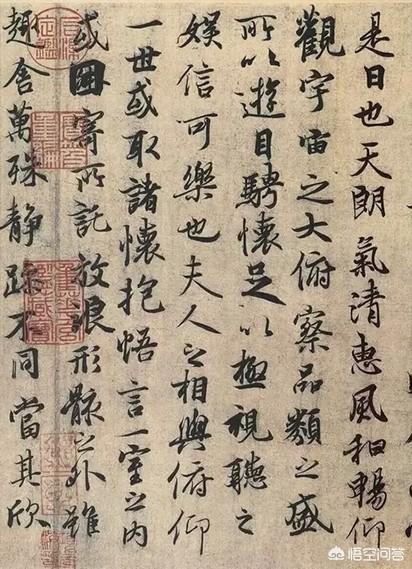 是日也天朗氣清惠風和暢仰
觀宇宙之大俯察品類之盛
所以遊目騁懷足以極視聽之
娛信可樂也夫人之相與俯仰
一世或取諸懷抱悟言一室之內
或因寄所託放浪形骸之外雖
趣舍萬殊靜躁不同當其欣
悟空问答